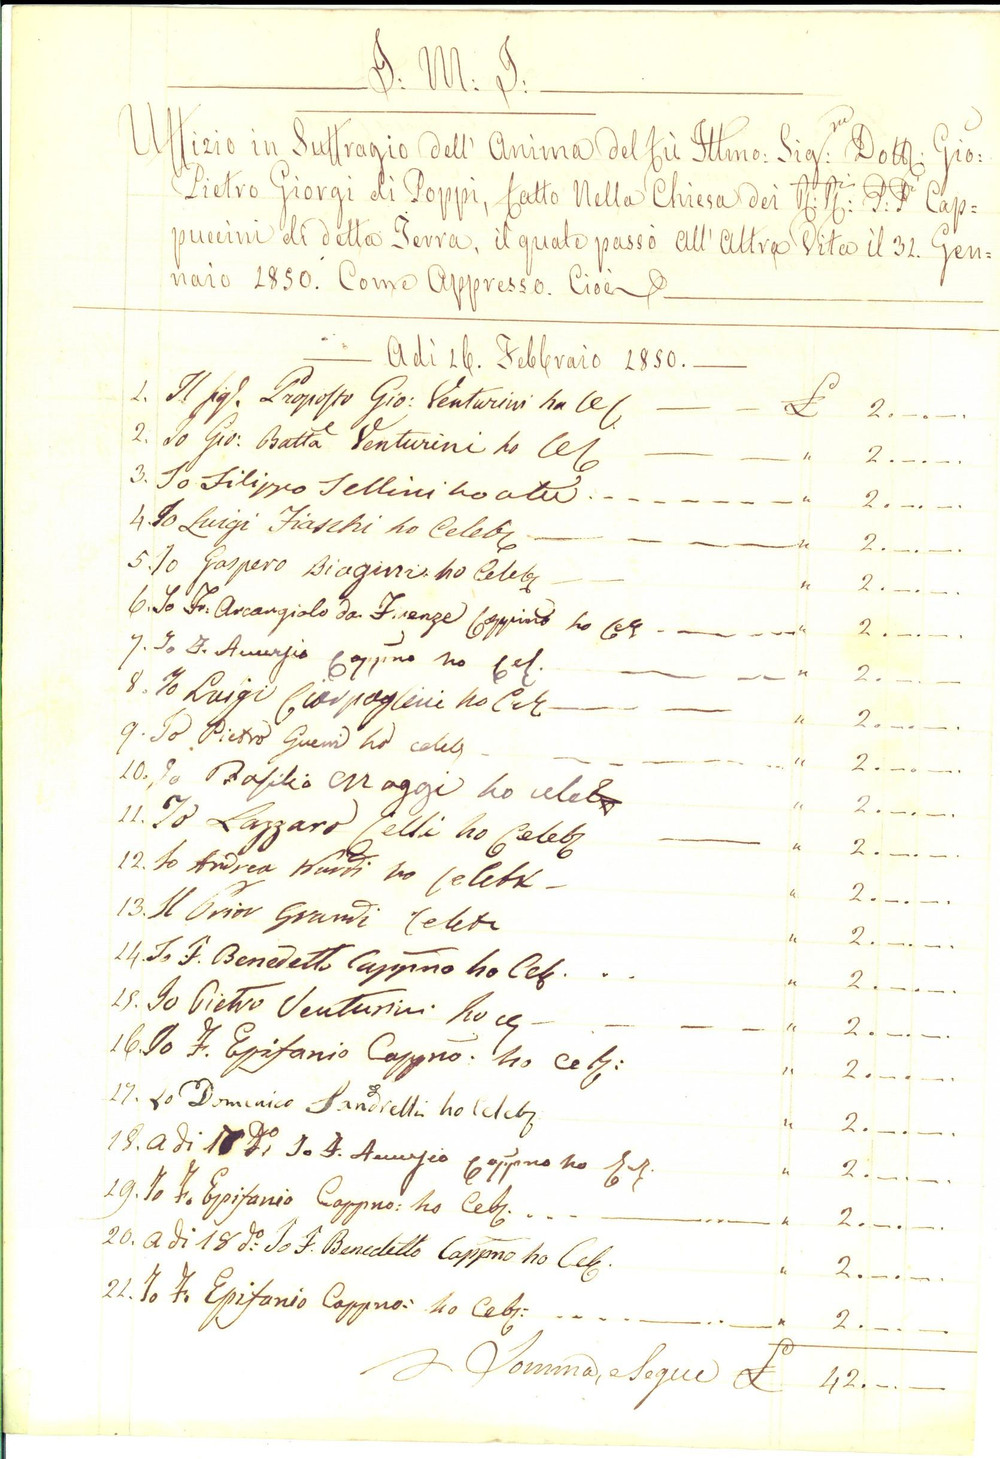 J: M: J:
Uffizio in Suffragio dell' Anima del fù Illmo: Sigre: Dottr: Gio:
Pietro Giorgi di Poppi, fatto nella Chiesa dei RR: PP: Cap=
puccini di detta Terra, il quale passò all' altra Vita il 31. Gen=
naio 1850. Come Appresso. Cioè
Adì 16. Febbraio 1850.
1. Il Sigr. Proposto Gio: Venturini ha Cel. £ 2.
2. Io Gio: Batta Venturini ho Cel " 2.
3. Io Filippo Sellini ho " 2.
4. Io Luigi Fiaschi ho Celebr " 2.
5. Io Gaspero Biagini ho Celebr " 2.
6. Io Fr: Arcangiolo da Firenze Cappino ho Celr " 2.
7. Io F. Cappno ho Cel. " 2.
8. Io Luigi ho Celr " 2.
9. Io Pietro ho celebr " 2.
10. Io Basilio Maggi ho celebr " 2.
11. Io Lazzaro Celli ho Celebr " 2.
12. Io Andrea Nardi ho Celebr " 2.
13. Il Prior Grandi Celebr " 2.
14. Io F. Benedetto Cappno ho Celr. " 2.
15. Io Pietro Venturini ho " 2.
16. Io F. Epifanio Cappno: ho Cebr: " 2.
17. Io Domenico Sandrelli ho Celebr " 2.
18. a dì 17 do Io F. Cappno ho " 2.
19. Io F. Epifanio Cappno: ho Cebr. " 2.
20. a dì 18 do: Io F. Benedetto Cappno ho Celr. " 2.
21. Io F. Epifanio Cappno: ho Cebr: " 2.
Somma, e Segue £ 42.